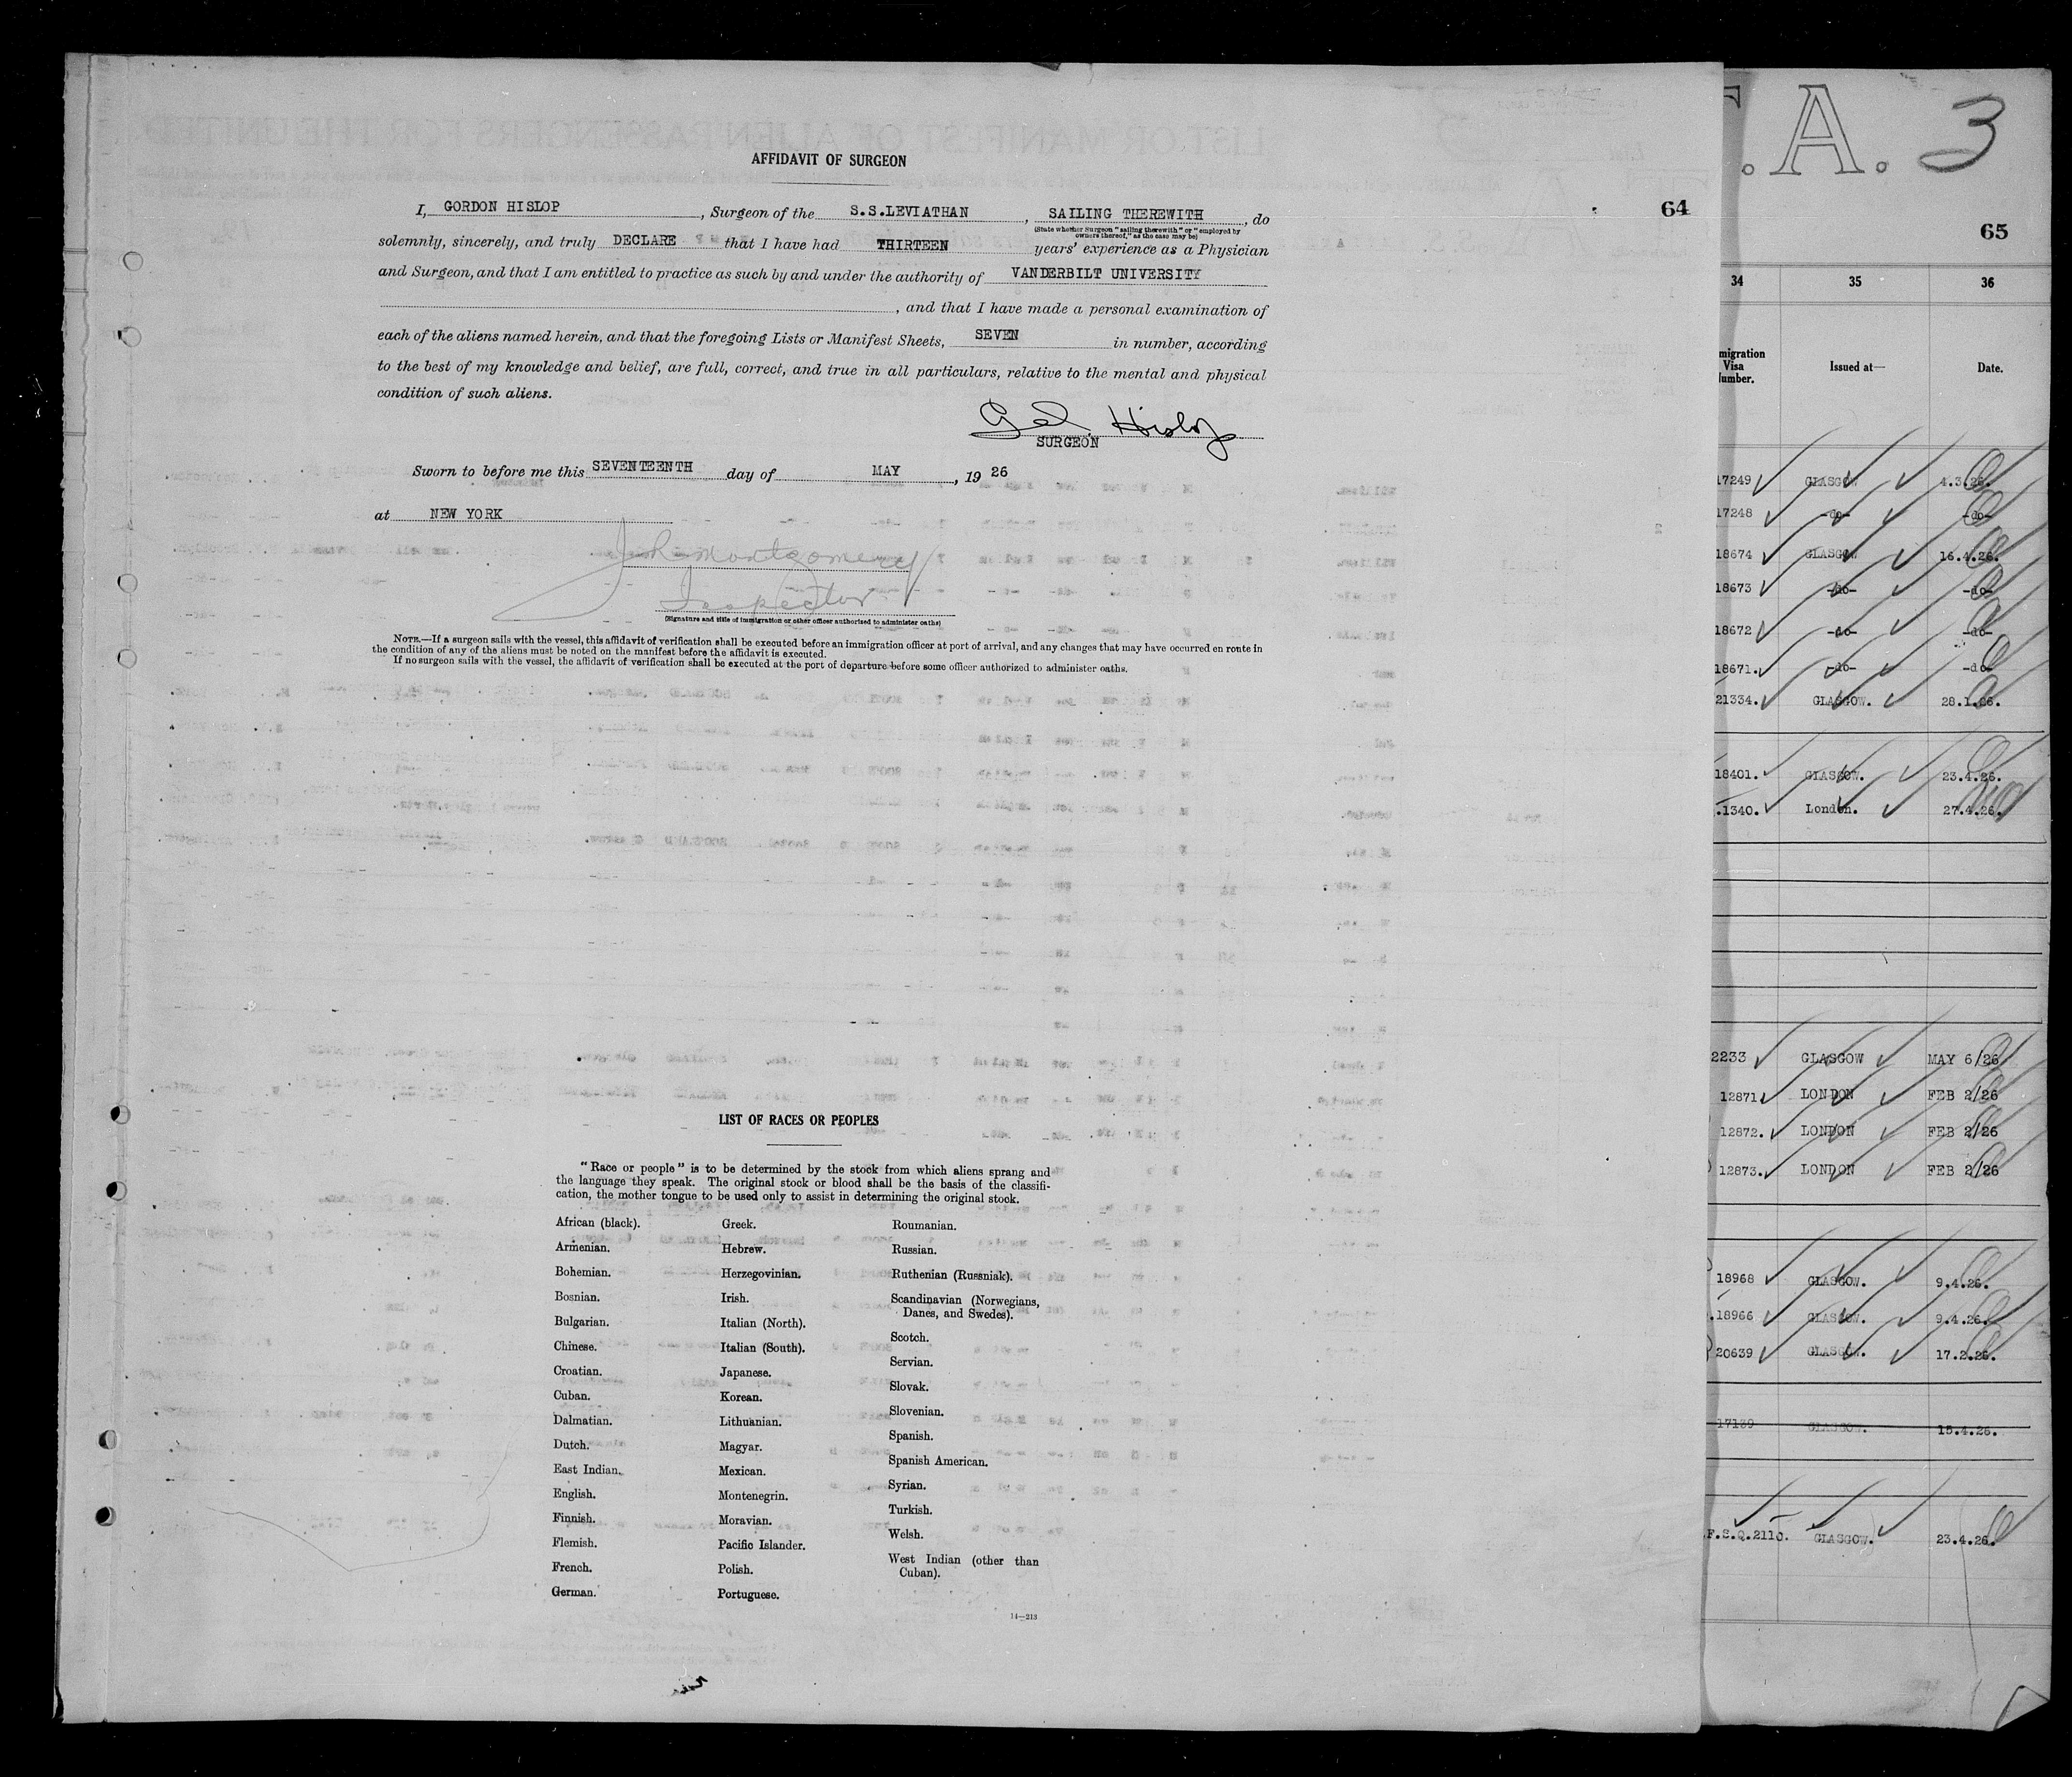 AFFIDAVIT OF SURGEON
I, GORDON HISLOP, Surgeon of the S.S.LEVIATHAN, SAILING THEREWITH, do
(State whether Surgeon "sailing therewith" or "employed by
owners thereof," as the case may be)
solemnly, sincerely, and truly DECLARE that I have had THIRTEEN years' experience as a Physician
and Surgeon, and that I am entitled to practice as such by and under the authority of VANDERBILT UNIVERSITY
, and that I have made a personal examination of
each of the aliens named herein, and that the foregoing Lists or Manifest Sheets, SEVEN in number, according
to the best of my knowledge and belief, are full, correct, and true in all particulars, relative to the mental and physical
condition of such aliens.
Hislop
SURGEON
Sworn to before me this SEVENTEENTH day of MAY, 19 26
at NEW YORK
Montgomery
Inspector
(Signature and title of immigration or other officer authorized to administer oaths)
NOTE.—If a surgeon sails with the vessel, this affidavit of verification shall be executed before an immigration officer at port of arrival, and any changes that may have occurred en route in
the condition of any of the aliens must be noted on the manifest before the affidavit is executed.
If no surgeon sails with the vessel, the affidavit of verification shall be executed at the port of departure before some officer authorized to administer oaths.
64
LIST OF RACES OR PEOPLES
"Race or people" is to be determined by the stock from which aliens sprang and
the language they speak. The original stock or blood shall be the basis of the classifi-
cation, the mother tongue to be used only to assist in determining the original stock.
African (black).
Armenian.
Bohemian.
Bosnian.
Bulgarian.
Chinese.
Croatian.
Cuban.
Dalmatian.
Dutch.
East Indian.
English.
Finnish.
Flemish.
French.
German.
Greek.
Hebrew.
Herzegovinian.
Irish.
Italian (North).
Italian (South).
Japanese.
Korean.
Lithuanian.
Magyar.
Mexican.
Montenegrin.
Moravian.
Pacific Islander.
Polish.
Portuguese.
Roumanian.
Russian.
Ruthenian (Russniak).
Scandinavian (Norwegians,
Danes, and Swedes).
Scotch.
Servian.
Slovak.
Slovenian.
Spanish.
Spanish American.
Syrian.
Turkish.
Welsh.
West Indian (other than
Cuban).
14—213
.A. 3
65
34 35 36
migration
Visa
Number.
Issued at—
Date.
17249 GLASGOW 4.3.26.
17248 -do- -do-
18674 GLASGOW 16.4.26.
18673 -do- -do-
18672 -do- -do-
18671. -do- -do-
21334. GLASGOW. 28.1.26.
18401. GLASGOW. 23.4.26.
.1340. London. 27.4.26.
2233 GLASGOW MAY 6/26
12871 LONDON FEB 2/26
12872. LONDON FEB 2/26
12873. LONDON FEB 2/26
18968 GLASGOW. 9.4.26.
.18966 GLASGOW. 9.4.26.
20639 GLASGOW. 17.2.26.
17139 GLASGOW. 15.4.26.
F.S.Q.2110. GLASGOW. 23.4.26.